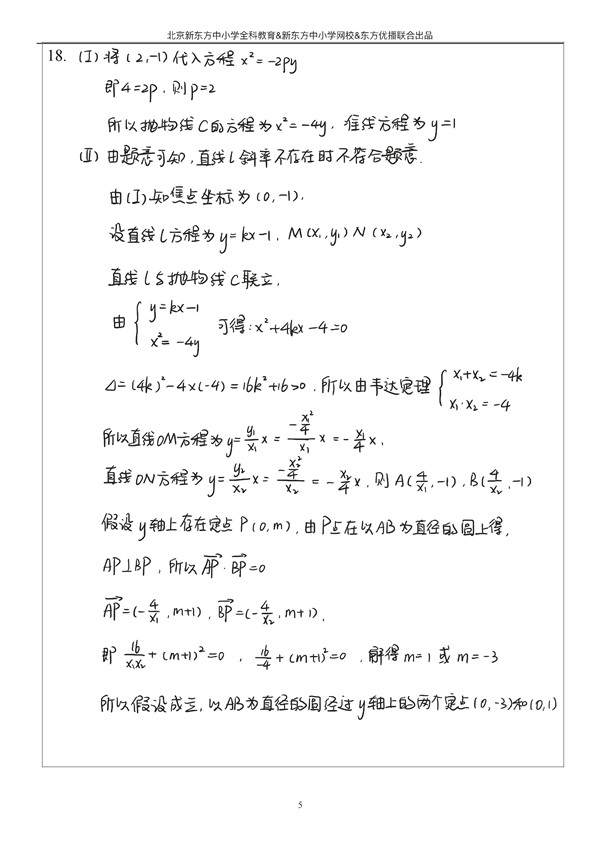 北京新东方中小学全科教育&新东方中小学网校&东方优播联合出品
18. (Ⅰ) 将 (2,-1) 代入方程 x²=-2py
即 4=2p, 则 p=2
所以抛物线C的方程为 x²=-4y, 准线方程为 y=1
(Ⅱ) 由题意可知, 直线 l 斜率不存在时不符合题意.
由(Ⅰ)知焦点坐标为 (0,-1).
设直线 l 方程为 y=kx-1, M(x₁,y₁) N(x₂,y₂)
直线 l 与抛物线 C 联立,
由 { y=kx-1 x²=-4y 可得: x²+4kx-4=0
Δ=(4k)²-4×(-4)=16k²+16>0. 所以由韦达定理 { x₁+x₂=-4k x₁·x₂=-4
所以直线OM方程为 y=y₁/x₁ x = (-x₁²/4)/x₁ x = -x₁/4 x,
直线ON方程为 y=y₂/x₂ x = (-x₂²/4)/x₂ = -x₂/4 x, 则 A(4/x₁,-1), B(4/x₂,-1)
假设 y 轴上存在定点 P(0,m), 由P点在以AB为直径的圆上得,
AP⊥BP, 所以 →AP·→BP=0
→AP=(-4/x₁, m+1), →BP=(-4/x₂, m+1).
即 16/x₁x₂+(m+1)²=0, 16/-4+(m+1)²=0, 解得 m=1 或 m=-3
所以假设成立, 以AB为直径的圆经过 y 轴上的两个定点 (0,-3)和(0,1)
5